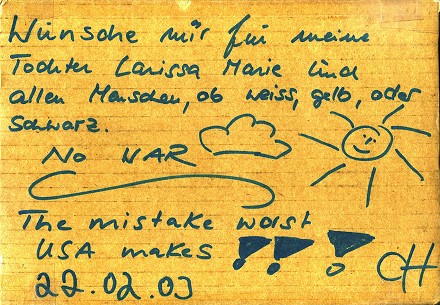 Wünsche mir für meine
Tochter Larissa Marie und
allen Menschen, ob weiss, gelb, oder
Schwarz.
No WAR
The mistake worst
USA makes !!!
22.02.03 CH